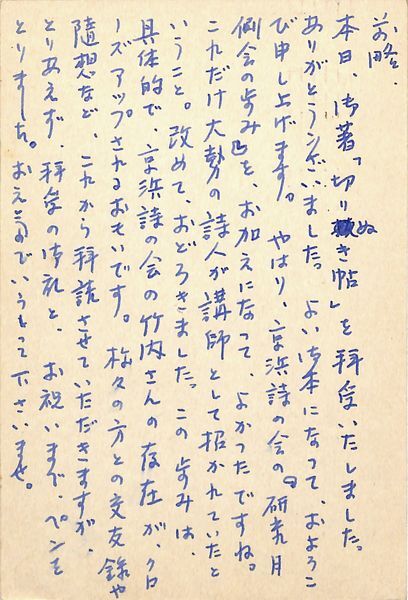 前略、
本日、御著「切りぬき帖」を拝受いたしました。
ありがとうございました。よい御本になって、およろこ
び申し上げます。やはり、京浜詩の会の『研究月
例会の歩み』を、お加えになって、よかったですね。
これだけ大勢の詩人が講師として招かれていたと
いうこと。改めて、おどろきました。この歩みは、
具体的で、京浜詩の会の竹内さんの存在が、クロ
ーズアップされるおもいです。数々の方との交友録や
随想など、これから拝読させていただきますが、
とりあえず、拝受の御礼と、お祝いまで、ペンを
とりました。おえ
下さいませ。